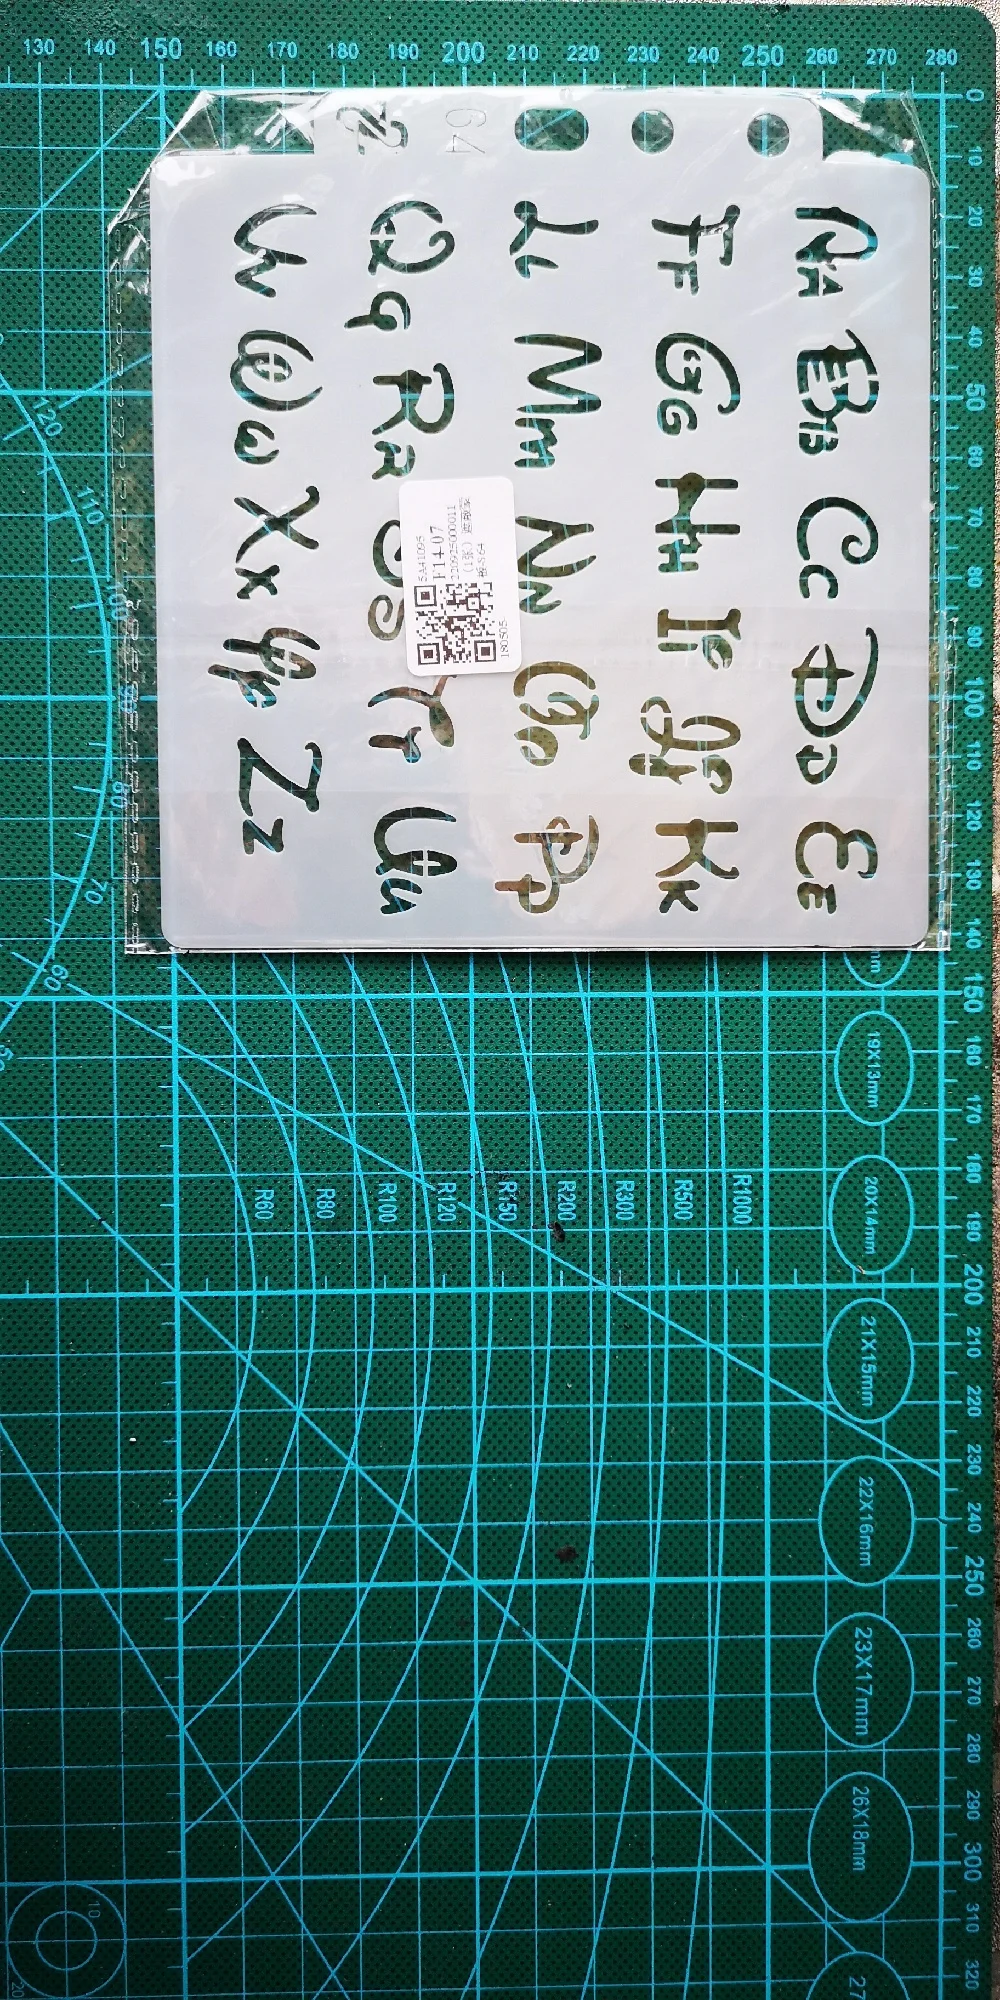 130 140 150 160 170 180 190 200 210 220 230 240 250 260 270 280
0
10
20
30
40
50
60
70
80
90
100
110
120
130
140
150
160
170
180
190
200
210
220
230
240
250
260
270
280
290
300
310
320
64
Aa Bb Cc Dd Ee
Ff Gg Hh Ii Jj Kk
Ll Mm Nn Oo Pp
Qq Rr Ss Tt Uu
Vv Ww Xx Yy Zz
SA41095
F14-07
220925000011
180505
120
110
70
60
R60 R80 R100 R120 R150 R200 R300 R500 R1000
19X13mm
20X14mm
21X15mm
22X16mm
23X17mm
26X18mm
27
10
20